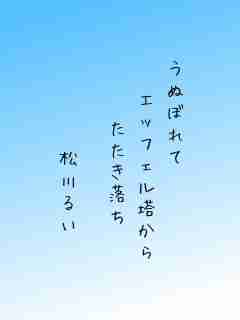 うぬぼれて
エッフェル塔から
たたき落ち
松川るい